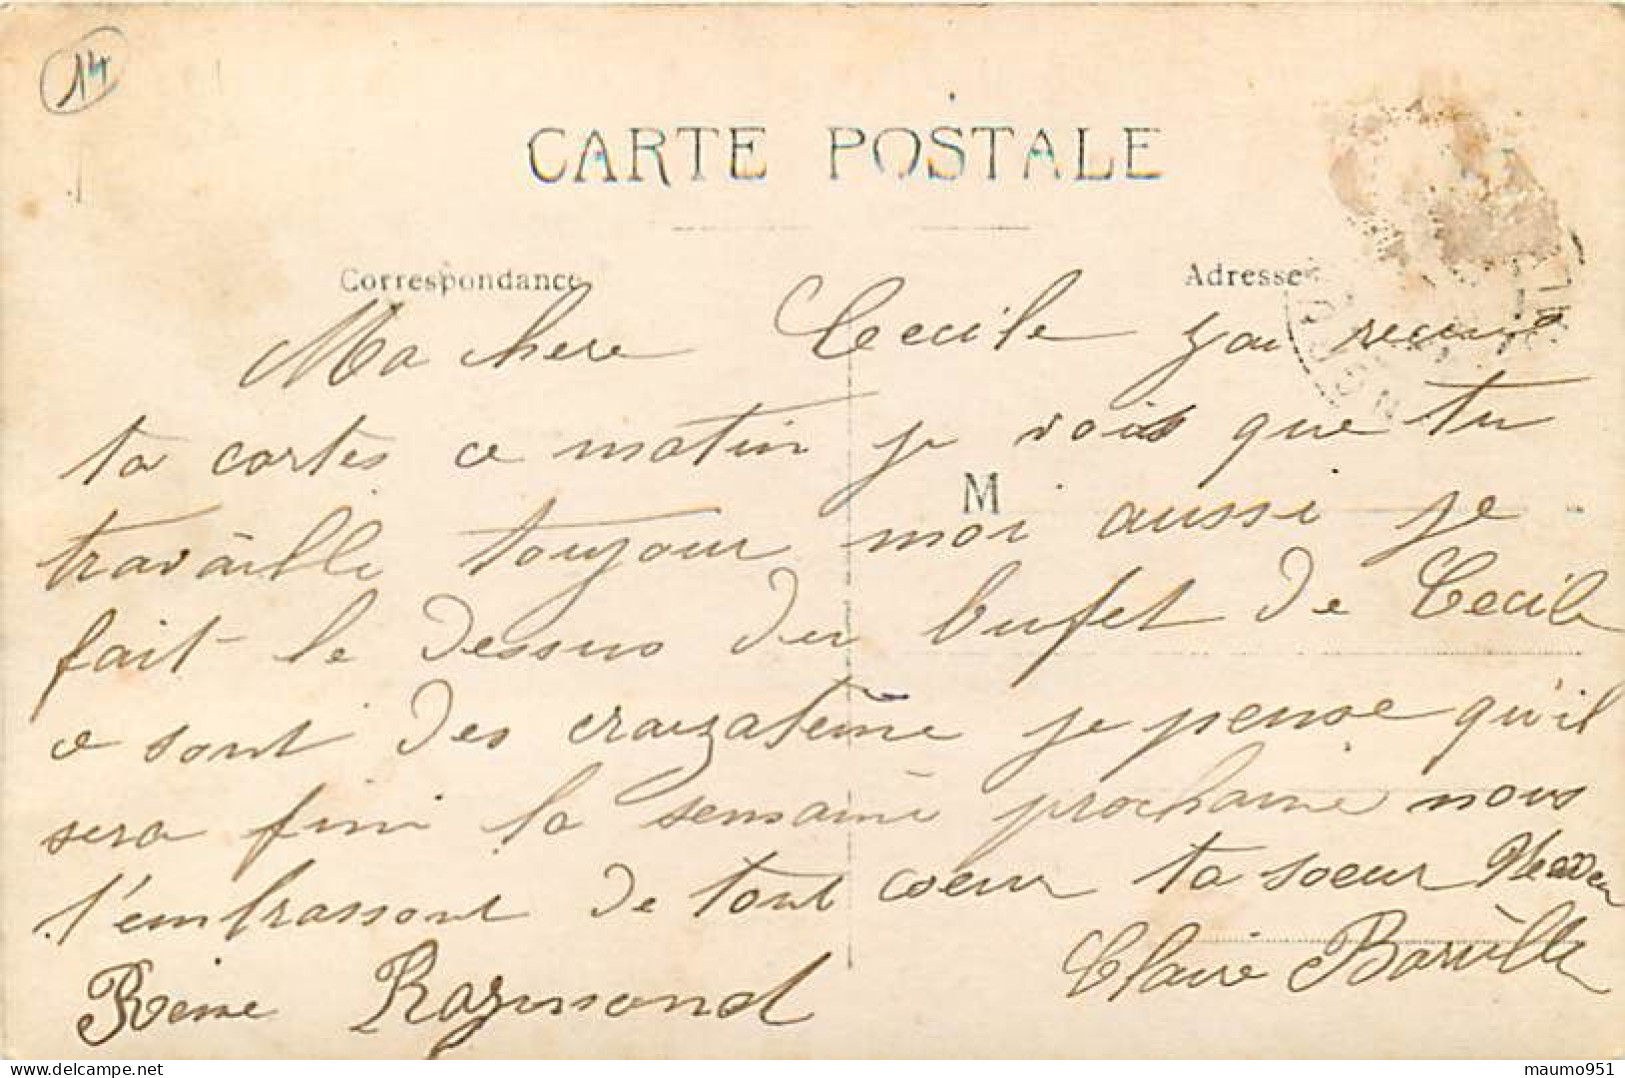 14
CARTE POSTALE
Correspondance
Adresse
Ma chere Cecile jai recuit
ta cartes ce matin je vois que tu
M
travaille toujour moi aussi je
fait le dessus du bufet de Cecile
ce sont des craizatème je pense qu'il
sera fini la semaine prochaine nous
t'embrassont de tout coeur ta soeur
Claire Barville
Reine Raymond
maumo951